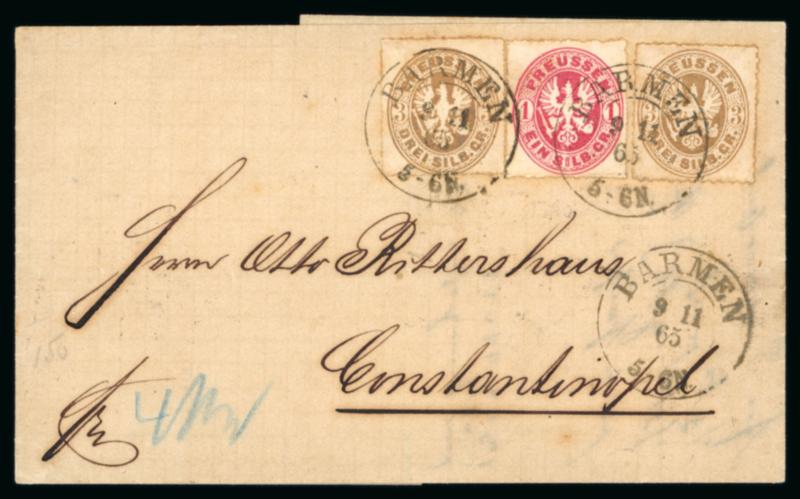 PREUSSEN
3
DREI SILB. GR.
PREUSSEN
1 1
EIN SILB. GR.
PREUSSEN
3 3
DREI SILB. GR.
BARMEN
9 11
65
5-6N.
BARMEN
9 11
65
5-6N.
Herrn Otto Rittershaus
BARMEN
9 11
65
5-6N.
Constantinopel
150